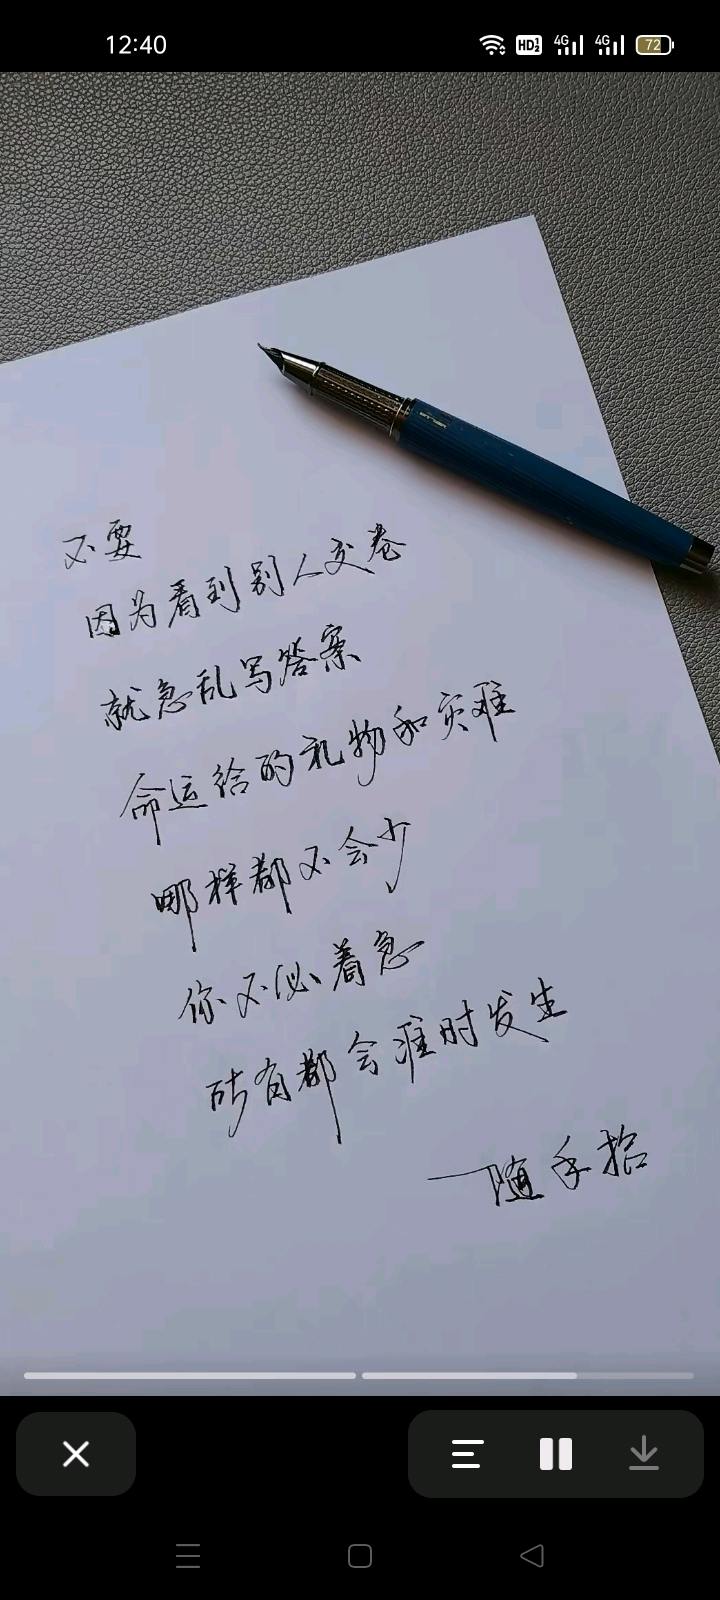 12:40
HD 4G 4G 72
不要
因为看到别人交卷
就急乱写答案
命运给的礼物和灾难
哪样都不会少
你不必着急
所有都会准时发生
一随手拾